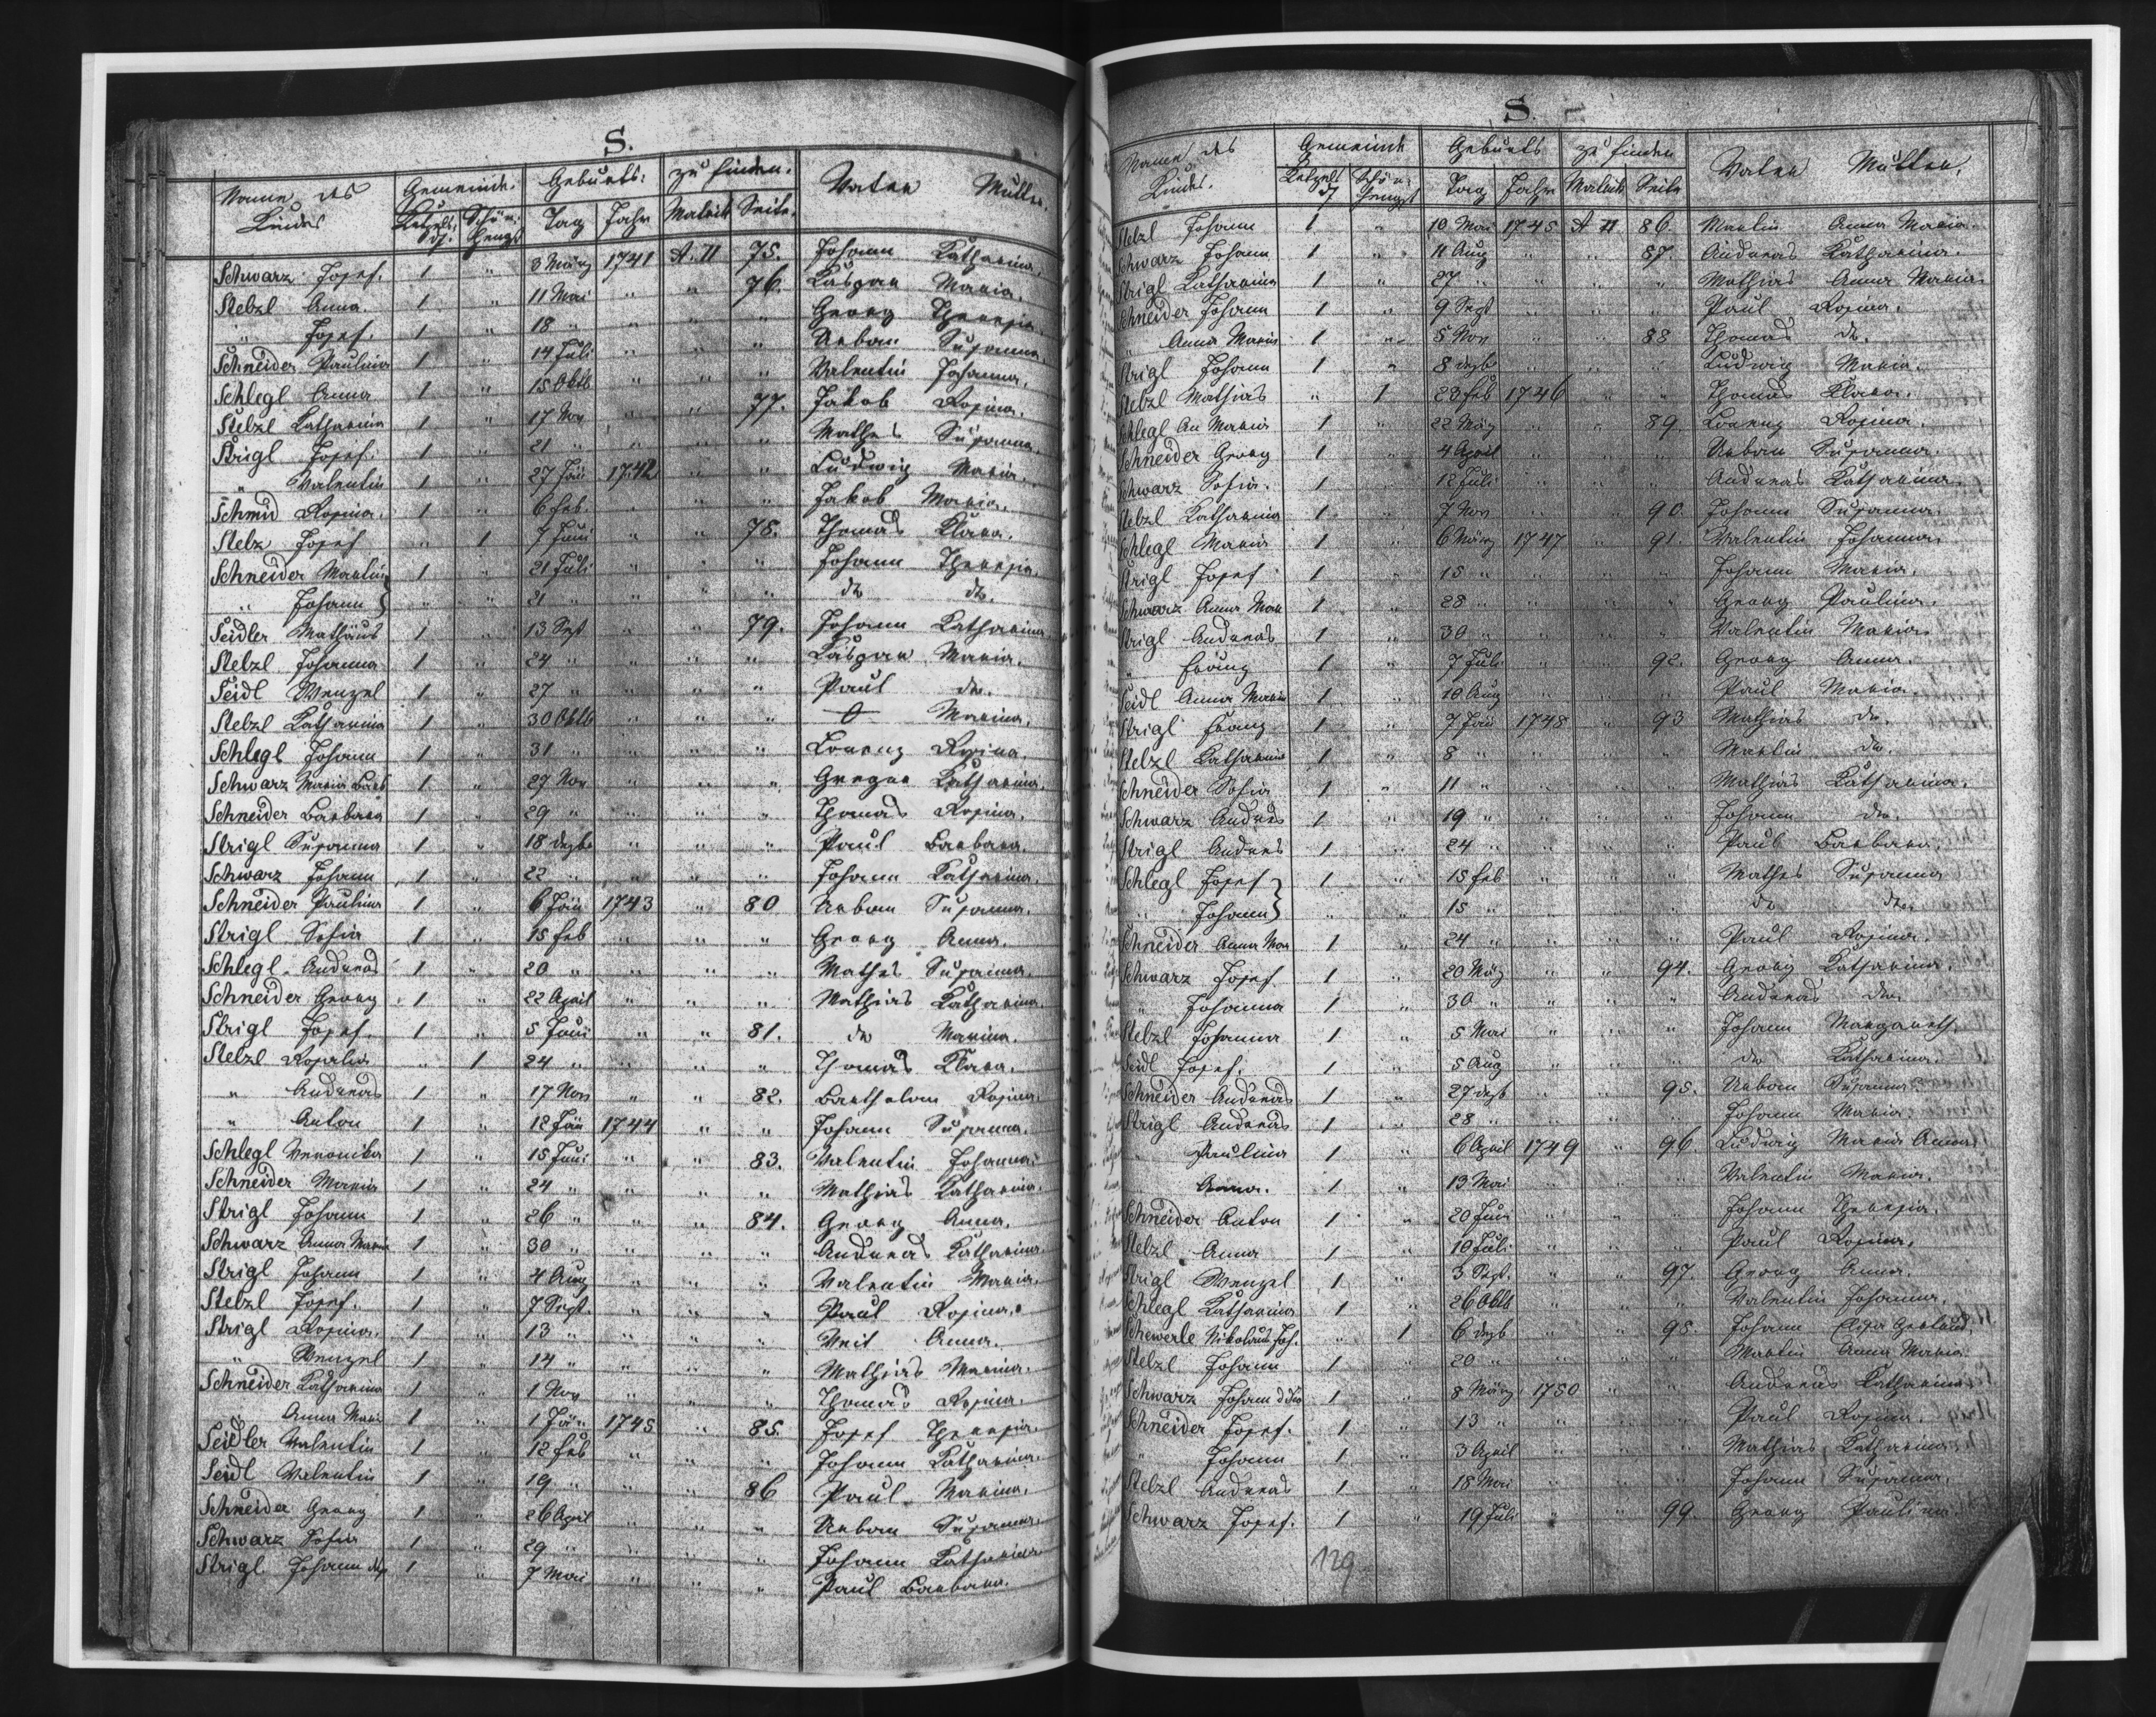 S.
Name des Kindes Gemeinde. Geburts: zu finden. Vater Mutter
Ketzels df. Schön: hengst Tag Jahr Matrik Seite.
Schwarz Josef. 1 " 3 März 1741 A. II 75. Johann Katharina.
Stelzl Anna. 1 " 11 Mai " " 76. Kaspar Maria.
" Josef. 1 " 18 " " " " Georg Theresia.
Schneider Paulina 1 " 14 Juli " " " Urban Susanna.
Schlegl Anna 1 " 15 Oktb " " " Valentin Johanna.
Stelzl Katharina 1 " 17 Nov " " 77. Jakob Rosina.
Strigl Josef. 1 " 21 " " " " Mathes Susanna.
" Valentin 1 " 27 Jän 1742 " " Ludwig Maria.
Schmid Rosina. 1 " 6 Feb. " " " Jakob Maria.
Stelz Josef " 1 7 Juni " " 78. Thomas Klara.
Schneider Martin 1 " 21 Juli " " " Johann Theresia.
" Johann } " " 21 " " " " dto dto.
Seidler Mathäus 1 " 13 Sept " " 79. Johann Katharina
Stelzl Johanna 1 " 24 " " " " Kaspar Maria.
Seidl Wenzel 1 " 27 " " " " Paul dto.
Stelzl Katharina 1 " 30 Oktb " " " 0 Marina.
Schlegl Johann 1 " 31 " " " " Lorenz Rosina.
Schwarz Maria Barb 1 " 27 Nov " " " Gregor Katharina.
Schneider Barbara 1 " 29 " " " " Thomas Rosina.
Strigl Susanna 1 " 18 Dezbr " " " Paul Barbara.
Schwarz Johann 1 " 22 " " " " Johann Katharina.
Schneider Paulina 1 " 6 Jän 1743 " 80 Urban Susanna.
Strigl Sofia 1 " 15 Feb " " " Georg Anna.
Schlegl Andreas 1 " 20 " " " " Mathes Susanna.
Schneider Georg 1 " 22 April " " " Mathias Katharina
Strigl Josef. 1 " 5 Juni " " 81. dto Marina.
Stelzl Rosalia " 1 24 " " " " Thomas Klara.
" Andreas 1 " 17 Nov " " 82. Bartholom Rosina.
" Anton 1 " 12 Jän 1744 " " Johann Susanna.
Schlegl Veronika 1 " 15 Juni " " 83. Valentin Johanna.
Schneider Maria 1 " 24 " " " " Mathias Katharina.
Strigl Johann 1 " 26 " " " 84. Georg Anna.
Schwarz Anna Maria 1 " 30 " " " " Andreas Katharina
Strigl Johann 1 " 4 Aug " " " Valentin Maria.
Stelzl Josef. 1 " 7 Sept. " " " Paul Rosina.
Strigl Rosina. 1 " 13 " " " " Veit Anna.
" Wenzel 1 " 14 " " " " Mathias Marina.
Schneider Katharina 1 " 1 Nov " " Thomas Rosina.
Anna Maria 1 " 1 Jän 1745 " 85. Josef Theresia.
Seidler Valentin 1 " 12 Feb " " " Johann Katharina.
Seidl Valentin 1 " 19 " " " 86 Paul Marina.
Schneider Georg 1 " 26 April " " " Urban Susanna.
Schwarz Sofia 1 " 29 " " " " Johann Katharina
Strigl Johann 1 " 7 Mai " " " Paul Barbara.
S.
Name des Kindes. Gemeinde Geburts zu finden Vater Mutter.
Ketzels df Schön: hengst Tag Jahr Matrik Seite
Stelzl Johann 1 " 10 Mai 1745 A II 86. Martin Anna Maria.
Schwarz Johann 1 " 11 Aug " " 87. Andreas Katharina.
Strigl Katharina 1 " 27 " " " " Mathias Anna Maria
Schneider Johann 1 " 9 Sept " " " Paul Rosina.
" Anna Maria 1 " 5 Nov " " 88 Thomas dto.
Strigl Johann 1 " 8 Dezb " " " Ludwig Maria.
Stelzl Mathias " 1 23 Feb 1746 " " Thomas Klara.
Schlegl An Maria 1 " 22 März " " 89. Lorenz Rosina.
Schneider Georg 1 " 4 April " " " Urban Susanna.
Schwarz Sofia. 1 " 12 Juli " " " Andreas Katharina
Stelzl Katharina 1 " 7 Nov " " 90. Johann Susanna.
Schlegl Maria 1 " 6 März 1747 " 91. Valentin Johanna.
Strigl Josef 1 " 15 " " " " Johann Maria.
Schwarz Anna Mar 1 " 28 " " " " Georg Paulina.
Strigl Andreas 1 " 30 " " " " Valentin Maria.
" Franz 1 " 7 Juli " " 92. Georg Anna.
Seidl Anna Maria 1 " 10 Aug " " " Paul Maria.
Strigl Franz 1 " 7 Jän 1748 " 93 Mathias dto.
Stelzl Katharina 1 " 8 " " " " Martin dto.
Schneider Sofia 1 " 11 " " " " Mathias Katharina.
Schwarz Andreas 1 " 19 " " " " Johann dto.
Strigl Andreas 1 " 24 " " " " Paul Barbara.
Schlegl Josef } 1 " 15 Feb " " " Mathes Susanna
" Johann } " " 15 " " " " dto dto.
Schneider Anna Mar 1 " 24 " " " " Paul Rosina.
Schwarz Josef 1 " 20 März " " 94. Georg Katharina.
" Johanna 1 " 30 " " " " Andreas dto.
Stelzl Johanna 1 " 5 Mai " " " Johann Margareth.
Seidl Josef. 1 " 5 Aug " " " dto Katharina.
Schneider Andreas 1 " 27 Dezb " " 95. Urban Susanna
Strigl Andreas 1 " 28 " " " " Johann Maria
" Paulina 1 " 6 April 1749 " 96. Ludwig Maria Anna
Anna. 1 " 13 Mai " " " Valentin Maria.
Schneider Anton 1 " 20 Juni " " " Johann Theresia.
Stelzl Anna 1 " 10 Juli " " " Paul Rosina.
Strigl Wenzel 1 " 3 Sept. " " 97. Georg Anna.
Schlegl Katharina 1 " 26 Oktb " " " Valentin Johanna.
Schewerle Nikolaus Joh. " 1 6 Dezb " " 98. Johann
Stelzl Johann 1 " 20 " " " " Martin Anna Maria
Schwarz Johann 1 " 8 März 1750 " " Andreas Katharina
Schneider Josef. 1 " 13 " " " " Paul Rosina.
" Johann 1 " 3 April " " " Mathias Katharina
Stelzl Andreas 1 " 18 Mai " " " Johann Susanna.
Schwarz Josef. 1 " 19 Juli " " 99. Georg Paulina.
129